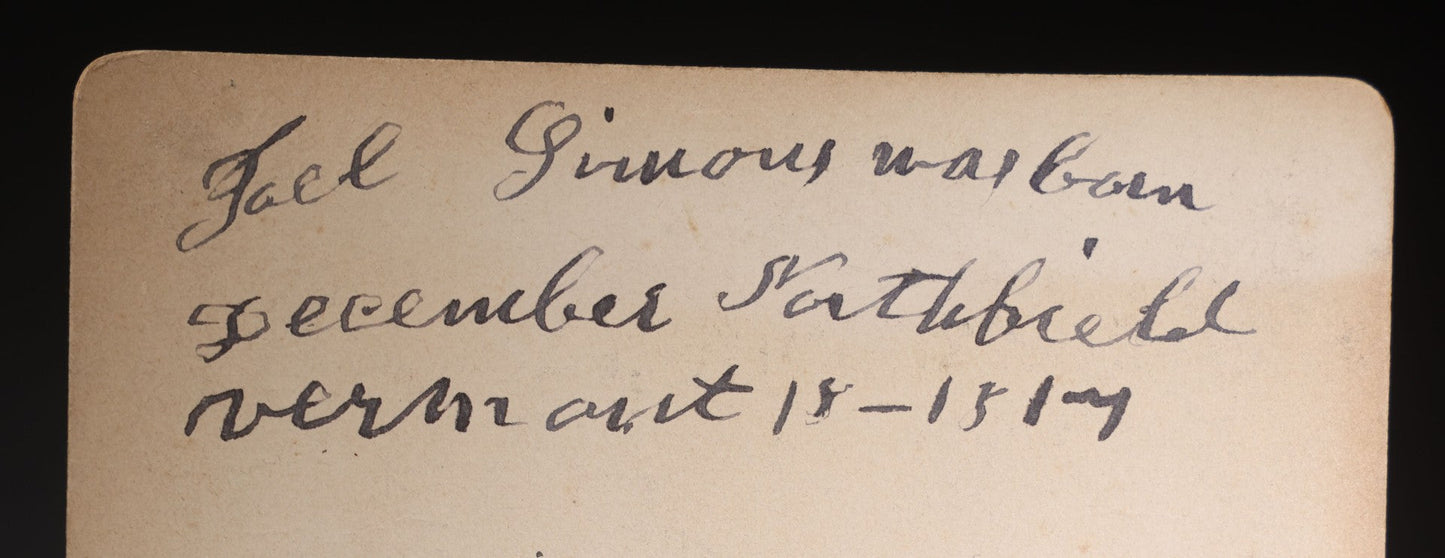 Joel Simons was born
December Northfield
vermont 18-1817